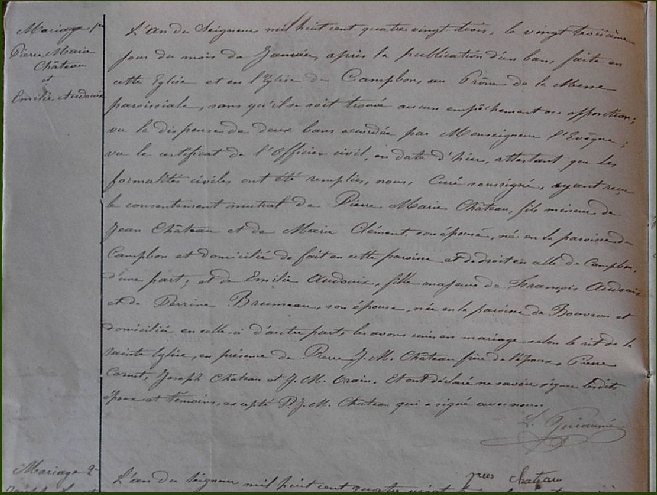 Mariage
Pierre Marie
Chateau
et
Emilie Audouin
L'an du Seigneur mil huit cent quatre vingt trois, le vingt troisième
jour du mois de Janvier, après la publication d'un ban, faite en
cette Eglise et en l'Eglise de Campbon, au Prône de la Messe
paroissiale, sans qu'il se soit trouvé aucun empêchement ou opposition;
vu la dispense de deux bans accordée par Monseigneur l'Evêque;
vu le certificat de l'Officier civil, en date d'hier, attestant que les
formalités civiles ont été remplies, nous, Curé soussigné, ayant reçu
le consentement mutuel de Pierre Marie Château, fils mineur de
Jean Château et de Marie Clément son épouse, né en la paroisse de
Campbon et domicilié de fait en cette paroisse et de droit en celle de Campbon,
d'une part; et de Emilie Audouin, fille majeure de François Audouin
et de Perrine Bruneau, son épouse, née en la paroisse de Bouvron et
domiciliée en celle-ci d'autre part, les avons unis en mariage selon le rit de la
Sainte Eglise, en présence de Pierre J. M. Château frère de l'époux, Pierre
Joseph Chateau et J. M. Et ont déclaré ne savoir signer lesdits
époux et témoins, excepté P. J. M. Chateau qui a signé avec nous.
Mariage
L'an du Seigneur mil huit cent quatre vingt
Chateau